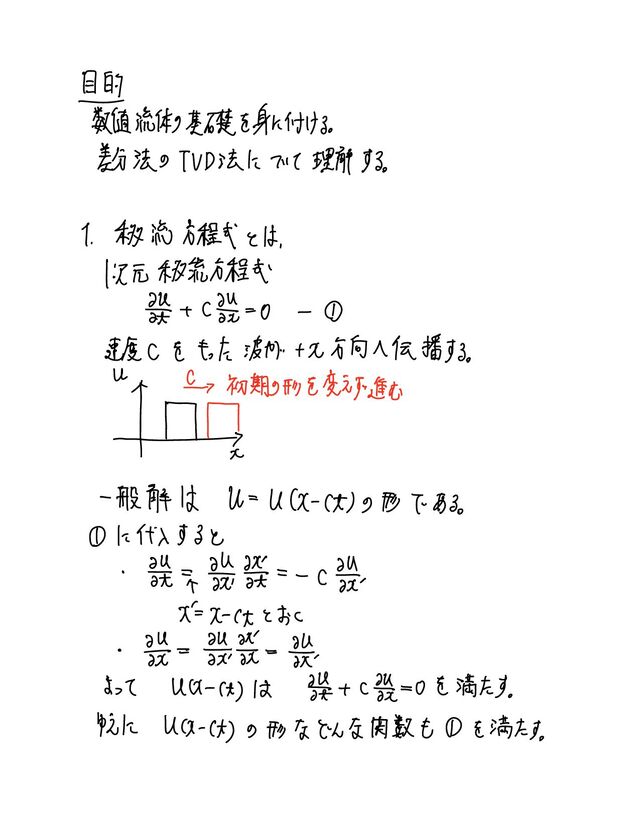 目的
数値流体の基礎を身に付ける。
差分法のTVD法について理解する。
1. 移流方程式とは、
1次元移流方程式
∂u/∂t + c ∂u/∂x = 0 ー ①
速度 c をもった波が +x方向へ伝播する。
u
c → 初期の形を変えず進む
x
一般解は u = u(x-ct) の形である。
①に代入すると
・ ∂u/∂t = ∂u/∂x' ∂x'/∂t = - c ∂u/∂x'
↑
x' = x-ct とおく
・ ∂u/∂x = ∂u/∂x' ∂x'/∂x = ∂u/∂x'
よって u(x-ct) は ∂u/∂t + c ∂u/∂x = 0 を満たす。
ゆえに u(x-ct) の形などんな関数も①を満たす。